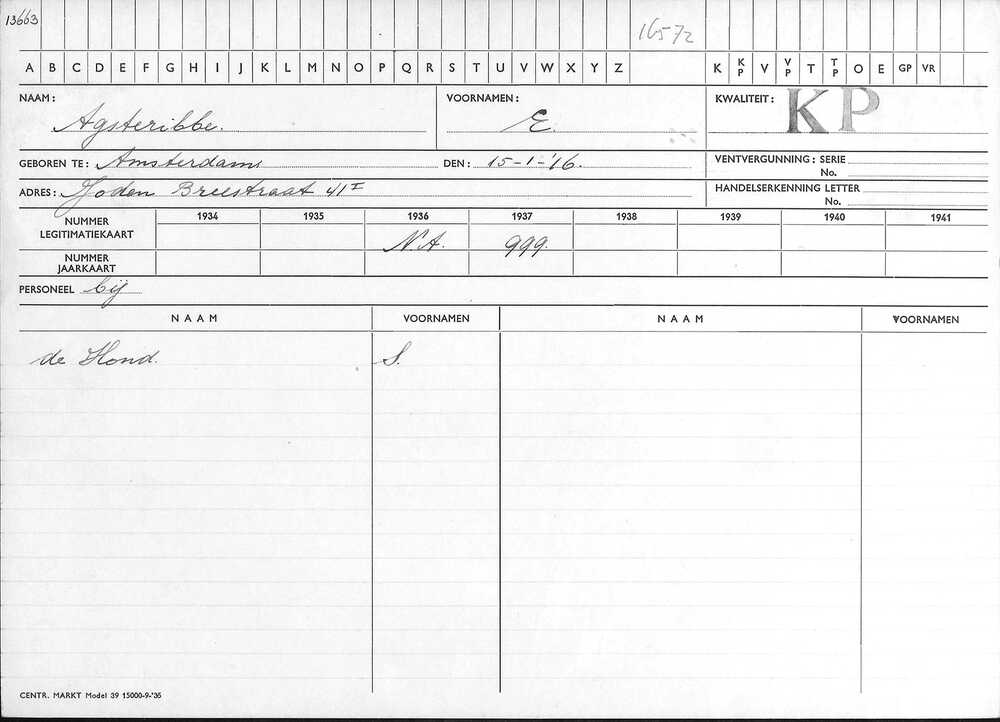 13663
16572
A B C D E F G H I J K L M N O P Q R S T U V W X Y Z K KP V VP T TP O E GP VR
NAAM: Agsteribbe. VOORNAMEN: E. KWALITEIT: KP
GEBOREN TE: Amsterdam DEN: 15-1-'16. VENTVERGUNNING: SERIE
No.
ADRES: Joden Breestraat 41 I HANDELSERKENNING LETTER
No.
1934 1935 1936 1937 1938 1939 1940 1941
NUMMER LEGITIMATIEKAART N.A. 999.
NUMMER JAARKAART
PERSONEEL bij
NAAM VOORNAMEN NAAM VOORNAMEN
de Hond. S.
CENTR. MARKT Model 39 15000-9-'36